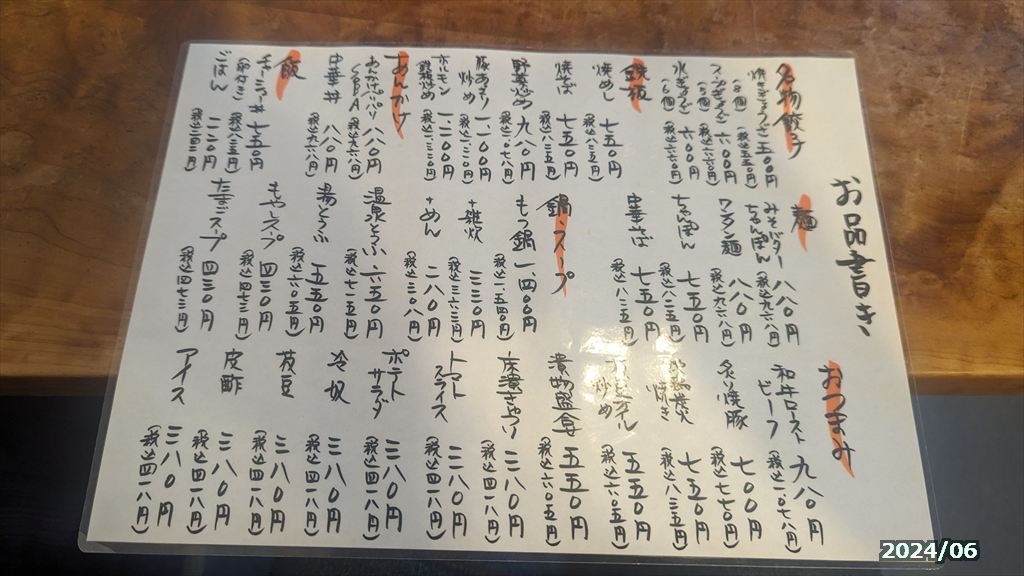 お品書き
名物餃子
焼ぎょうざ 五〇〇円
(8個) (税込五五〇円)
六〇〇円
(税込六六〇円)
水ぎょうざ 六〇〇円
(6個) (税込六六〇円)
鉄板
焼めし 七五〇円
(税込八二五円)
焼そば 七五〇円
(税込八二五円)
野菜炒め 九八〇円
(税込一、〇七八円)
炒め 一、〇〇〇円
(税込一、一〇〇円)
ホルモン
炒め
あんかけ
八八〇円
(税込九六八円)
中華丼 八八〇円
(税込九六八円)
飯
チャーシュー丼 七五〇円
(税込八二五円)
ごはん 二二〇円
(税込二四二円)
麺
みそバター
ちゃんぽん 八八〇円
(税込九六八円)
ワンタン麺 八八〇円
(税込九六八円)
ちゃんぽん 七五〇円
(税込八二五円)
中華そば 七五〇円
(税込八二五円)
鍋・スープ
もつ鍋 一、四〇〇円
(税込一、五四〇円)
+雑炊 三三〇円
(税込三六三円)
+めん 二八〇円
(税込三〇八円)
温泉とうふ 六五〇円
(税込七一五円)
湯どうふ 五五〇円
(税込六〇五円)
もやしスープ 四三〇円
(税込四七三円)
たまごスープ 四三〇円
(税込四七三円)
おつまみ
和牛ロースト
ビーフ 九八〇円
(税込一、〇七八円)
炙り焼豚 七〇〇円
(税込七七〇円)
焼き 七五〇円
(税込八二五円)
炒め 五五〇円
(税込六〇五円)
漬物盛合 五五〇円
(税込六〇五円)
床漬きゅうり 三八〇円
(税込四一八円)
トマト
スライス 三八〇円
(税込四一八円)
ポテト
サラダ 三八〇円
(税込四一八円)
冷奴 三八〇円
(税込四一八円)
枝豆 三八〇円
(税込四一八円)
皮酢 三八〇円
(税込四一八円)
アイス 三八〇円
(税込四一八円)
2024/06